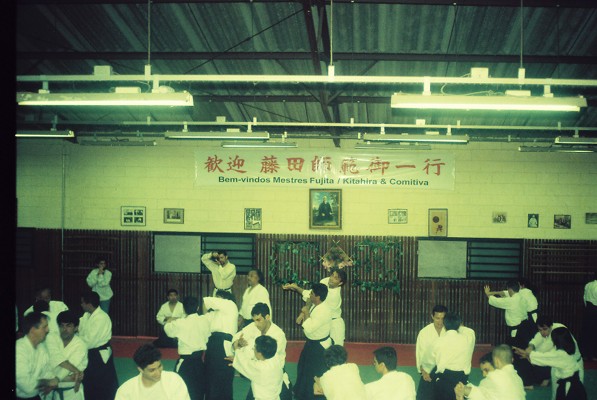 歓迎 藤田師範御一行
Bem-vindos Mestres Fujita / Kitahira & Comitiva